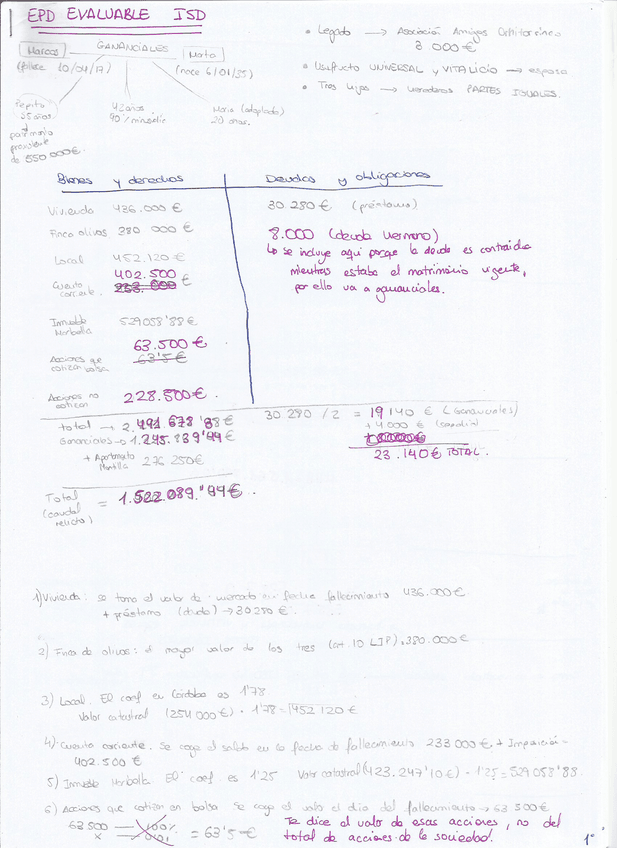 EPD EVALUABLE ISD
• Legado → Asociación Amigos Ornitorrinco
8 000 €
Marcos GANANCIALES Marta
(fallece 10/04/17) (nace 6/01/55)
• Usufructo UNIVERSAL y VITALICIO → esposa
• Tres hijos → herederos PARTES IGUALES.
Pepito 42 años María (adoptada)
35 años 90% minusvalía 20 años.
patrimonio
preexistente
de 550 000 €.
Bienes y derechos Deudas y obligaciones
Vivienda 436.000 € 30 280 € (préstamo)
Finca olivos 380 000 € 8.000 (deuda hermano)
Local 452.120 € ↳ se incluye aquí porque la deuda es contraída
402.500 mientras estaba el matrimonio vigente,
Cuenta corriente. 233.000 € por ello va a gananciales.
Inmueble Marbella 529058'88 €
63.500 €
Acciones que cotizan bolsa 63'5 €
Acciones no cotizan 228.500 €.
Total → 2.491.678'88 € 30 280 / 2 = 19 140 € (Gananciales)
Gananciales → 1.245.839'44 € + 4000 €
+ Apartamento Montilla 276 250 € 23.140 € TOTAL.
Total (caudal relicto) = 1.522.089.'44 €.
1) Vivienda: se toma el valor de mercado en fecha fallecimiento 436.000 €
+ préstamo (deuda) → 30 280 €.
2) Finca de olivos: el mayor valor de los tres (art. 10 LIP). 380.000 €
3) Local. El coef en Córdoba es 1'78
Valor catastral (254 000 €) · 1'78 = 452 120 €
4) Cuenta corriente. Se coge el saldo en la fecha de fallecimiento 233 000 € + Imposición =
402.500 €
5) Inmueble Marbella El coef es 1'25 Valor catastral (423.247'10 €) · 1'25 = 529 058'88.
6) Acciones que cotizan en bolsa Se coge el valor el día del fallecimiento → 63 500 €
63 500 — 100% = 63'5 € Te dice el valor de esas acciones, no del
x — 0'1% total de acciones de la sociedad.
1º